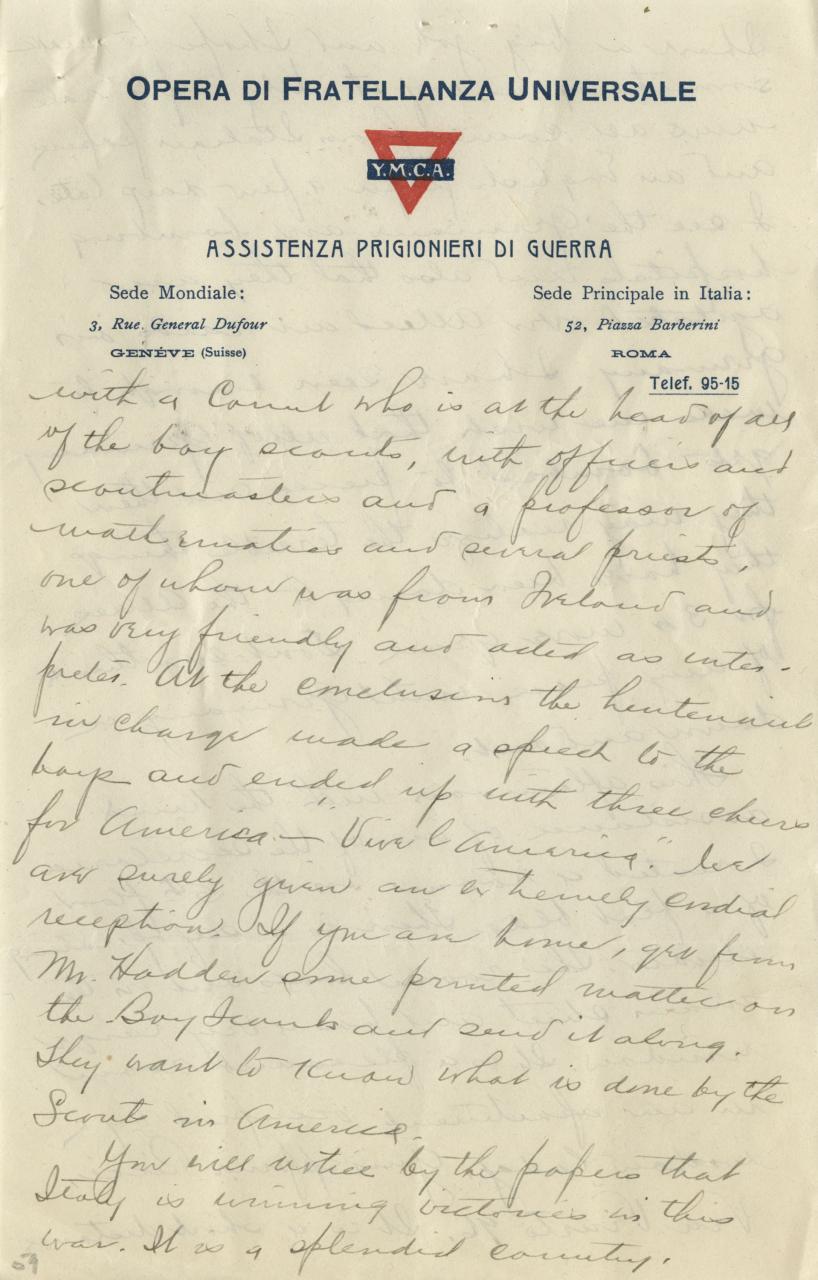 OPERA DI FRATELLANZA UNIVERSALE
Y.M.C.A.
ASSISTENZA PRIGIONIERI DI GUERRA
Sede Mondiale:
3, Rue General Dufour
GENÉVE (Suisse)
Sede Principale in Italia:
52, Piazza Barberini
ROMA
Telef. 95-15
with a Count who is at the head of all
of the boy scouts, with officers and
scoutmasters and a professor of
mathematics and several priests,
one of whom was from Ireland and
was very friendly and acted as inter-
preter. At the conclusion the lieutenant
in charge made a speech to the
boys and ended up with three cheers
for America — "Viva l'America". We
are surely given an extremely cordial
reception. If you are home, get from
Mr. Hadden some printed matter on
the Boy Scouts and send it along.
They want to know what is done by the
Scouts in America.
You will notice by the papers that
Italy is winning victories in this
war. It is a splendid country.
59